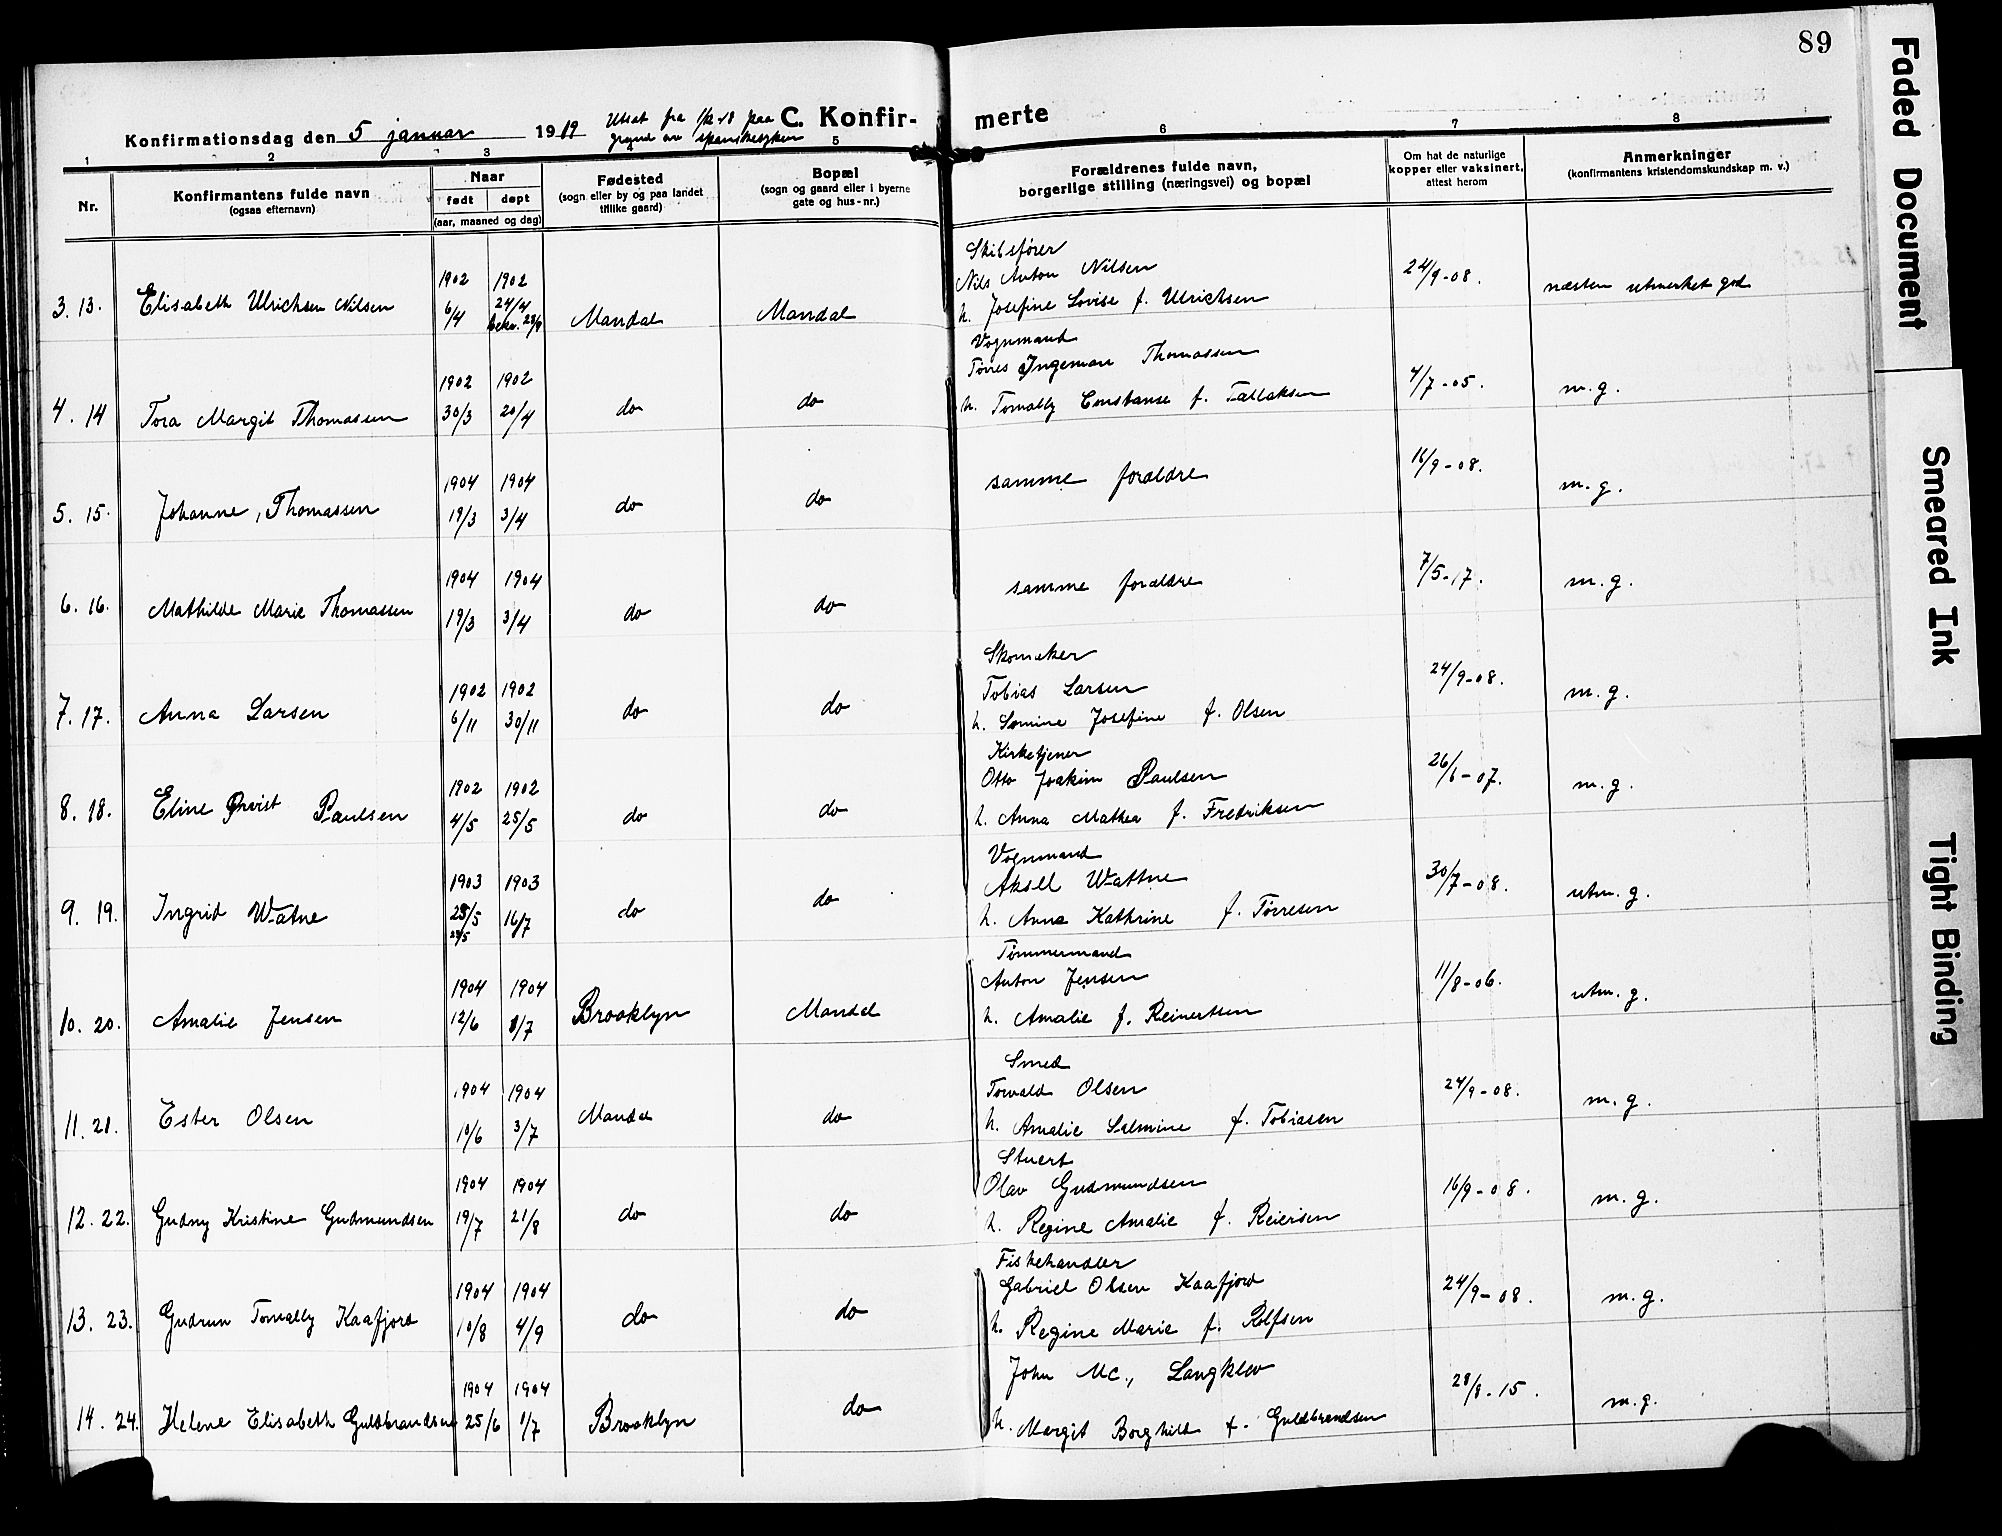 89
Konfirmationsdag den 5 januar 1919 Utsat fra 1/12 18 paa
grund av spanskesyken
C. Konfirmerte
1 2 3 4 5 6 7 8
Nr.
Konfirmantens fulde navn
(ogsaa efternavn)
Naar
født døpt
(aar, maaned og dag)
Fødested
(sogn eller by og paa landet
tillike gaard)
Bopæl
(sogn og gaard eller i byerne
gate og hus-nr.)
Forældrenes fulde navn,
borgerlige stilling (næringsvei) og bopæl
Om hat de naturlige
kopper eller vaksinert,
attest herom
Anmerkninger
(konfirmantens kristendomskundskap m. v.)
Skibsfører
1902 1902 Nils Anton Nilsen 24/9-08.
3. 13. Elisabeth Ulrichsen Nilsen 6/4 24/4 bekr. 28/9 Mandal Mandal h. Josefine Lovise f. Ulrichsen næsten utmerket god
Vognmand
1902 1902 Tørres Ingeman Thomassen 4/7-05.
4. 14 Tora Margit Thomassen 30/3 20/4 do do h. Tomally Constanse f. Tallaksen m. g.
1904 1904 16/9-08.
5. 15. Johanne, Thomassen 19/3 3/4 do do samme foraldre m. g.
1904 1904 7/5-17.
6. 16. Mathilde Marie Thomassen 19/3 3/4 do do samme foraldre m. g.
Skomaker
1902 1902 Tobias Larsen 24/9-08.
7. 17. Anna Larsen 6/11 30/11 do do h. Josefine f. Olsen m. g.
Kirketjener
1902 1902 Otto Joakim Paulsen 26/6-07.
8. 18. Eline Qvist Paulsen 4/5 25/5 do do h. Anna Mathea f. Fredriksen m. g.
Vognmand
1903 1903 Aksel Wattne 30/7-08.
9. 19. Ingrid Watne 28/5 16/7 do do h. Anna Kathrine f. Tørresen utm. g.
Tømmermand
1904 1904 Anton Jensen 11/8-06.
10. 20. Amalie Jensen 12/6 8/7 Brooklyn Mandal h. Amalie f. Reinertsen utm. g.
Smed
1904 1904 Torvald Olsen 24/9-08.
11. 21. Ester Olsen 10/6 3/7 Mandal do h. Amalie Salmine f. Tobiasen m. g.
Stuert
1904 1904 Olav Gudmundsen 16/9-08.
12. 22. Gudny Kristine Gudmundsen 19/7 21/8 do do h. Regine Amalie f. Reiersen m. g.
Fiskehandler
1904 1904 Gabriel Olsen Kaafjord 24/9-08.
13. 23. Gudrun Tomally Kaafjord 10/8 4/9 do do h. Regine Marie f. Rolfsen m. g.
1904 1904 John Mc., Langklev 28/8-15.
14. 24. Helene Elisabeth Guldbrandsen 25/6 1/7 Brooklyn do h. Margit Borghild f. Guldbrandsen m. g.
Faded Document
Smeared Ink
Tight Binding